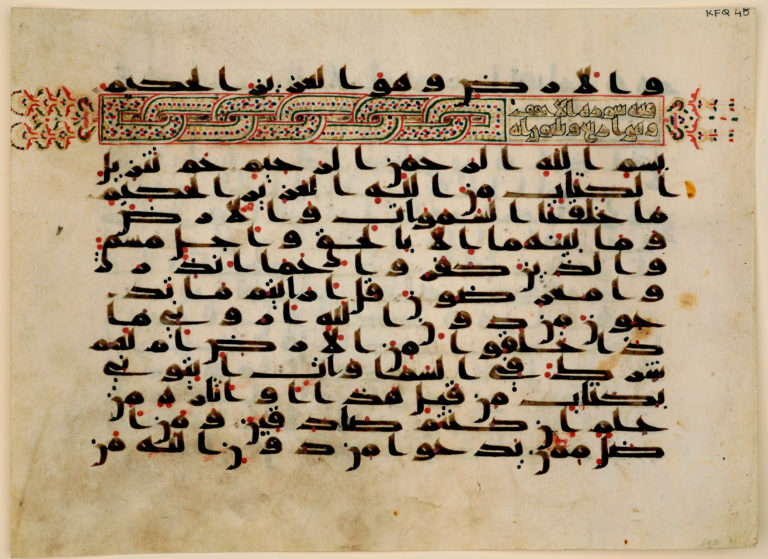 KFQ 45
والارض وهو العزيز الحكيم
سورة الاحقاف
بسم الله الرحمن الرحيم حم تنزيل
الكتاب من الله العزيز الحكيم
ما خلقنا السموات والارض
وما بينهما الا بالحق واجل مسمى
والذين كفروا عما انذر
وا معرضون قل ارايتم ما تد
عون من دون الله اروني ما
ذا خلقوا من الارض ام لهم
شرك في السماوات ايتوني
بكتاب من قبل هذا او اثارة من
علم ان كنتم صادقين ومن ا
ضل ممن يدعوا من دون الله من